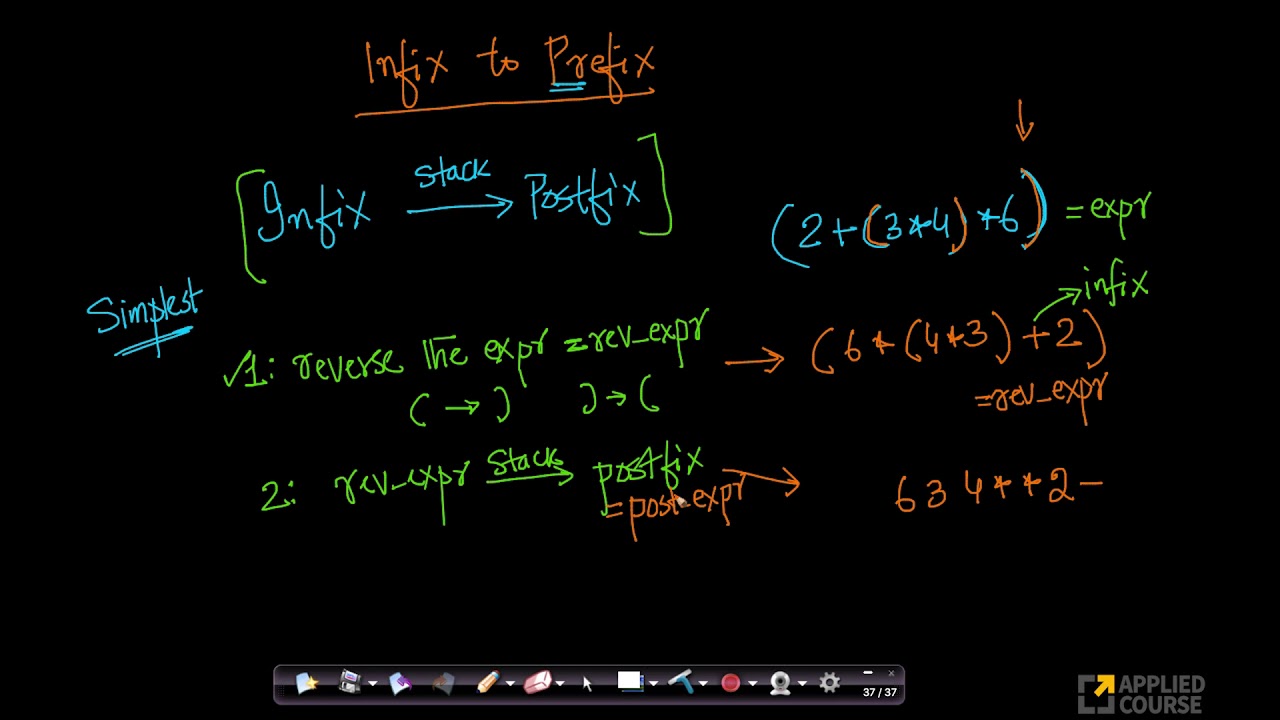 Infix to Prefix
[Infix stack → Postfix]
(2+(3*4)*6) = expr
Simplest
infix
1: reverse the expr = rev_expr → (6*(4*3)+2)
( → ) ) → (
= rev_expr
2: rev_expr stack → postfix → 6 3 4 * * 2 −
= post_expr
37 / 37
APPLIED
COURSE